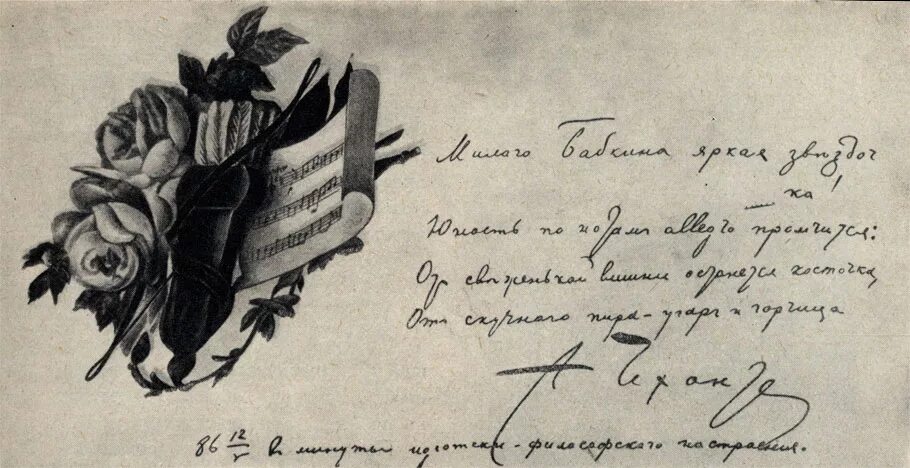 Милого Бабкина яркая звѣздоч
ка!
Юность по нотамъ allegro промчится:
Отъ свѣженькой вишни останется косточка,
Отъ скучного пира - угаръ и горчица
А Чехонте
86 12/V В минуты идіотски-философского настроения.